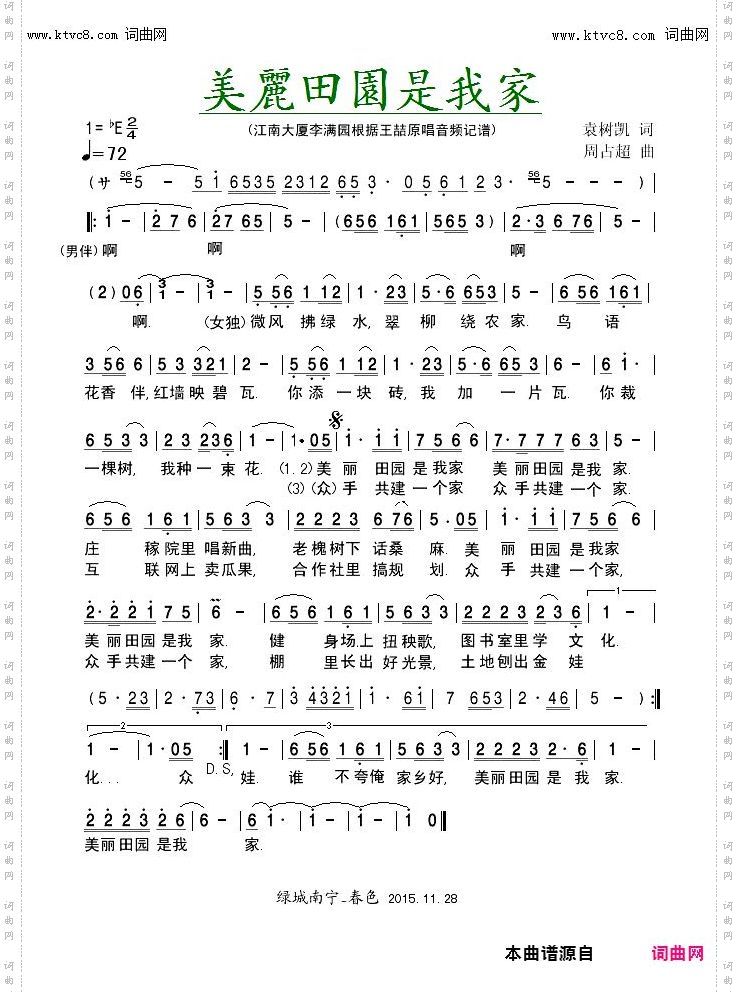 www.ktvc8.com 词曲网 www.ktvc8.com 词曲网
美麗田園是我家
1=♭E 2/4 (江南大厦李满园根据王喆原唱音频记谱) 袁树凯 词
♩=72 周占超 曲
(サ 56 5 - 5 1 6535 2312 65 3· 0 5 6 1 2 3· 56 5 - - - ) |
‖: 1 - | 2 7 6 | 27 65 | 5 - | (656 161 | 565 3 ) | 2·3 6 76 | 5 - |
(男伴) 啊 啊 啊
(2) 06 | 3 1 - | 3 1 - | 5 56 1 12 | 1· 23 | 5·6 653 | 5 - | 656 161 |
啊. (女独) 微风 拂绿 水, 翠 柳 绕农 家. 鸟 语
3 56 6 | 5 3 321 | 2 - | 5 56 1 12 | 1· 23 | 5·6 65 3 | 5 - | 6 1· |
花香 伴, 红墙映 碧 瓦. 你 添 一块 砖, 我 加 一 片 瓦. 你 裁
6 5 3 3 | 2 3 236 | 1 - | 1·05 | 1· 1 1 | 7 5 6 6 | 7·7 7 7 6 3 | 5 - |
一棵树, 我种一 束 花. (1.2) 美 丽 田园是我家 美丽田园是我 家.
(3) (众) 手 共建 一个家 众手共建一个 家.
6 5 6 1 6 1 | 5 6 3 3 | 2 2 2 3 6 76 | 5· 05 | 1· 1 1 | 7 5 6 6 |
庄 稼院里 唱新曲, 老槐树下 话桑 麻. 美 丽 田园 是我家
互 联网上 卖瓜果, 合作社里 搞规 划. 众 手 共建 一个家,
2·2 2 1 7 5 | 6 - | 6 5 6 1 6 1 | 5 6 3 3 | 2 2 2 3 2 3 6 | 1 - |
美丽田园是我 家. 健 身场上 扭秧歌, 图书室里学 文 化.
众手共建一个 家, 棚 里长出 好光景, 土地刨出金 娃
(5· 23 | 2· 73 | 6· 7 | 3 4321 | 1· 61 | 7 653 | 2·46 | 5 - ) :‖
1 - | 1·05 :‖ 1 - | 6 5 6 1 6 1 | 5 6 3 3 | 2 2 2 3 | 2 3 2 6 | 1 - |
化... 众 D.S, 娃. 谁 不夸俺 家乡好, 美丽田园 是 我 家.
2 2 2 3 | 2 3 2 6 | 6 - | 6 1· | 1 - | 1 - | 1 0 ‖
美丽田园 是我 家.
绿城南宁-春色 2015.11.28
本曲谱源自 词曲网